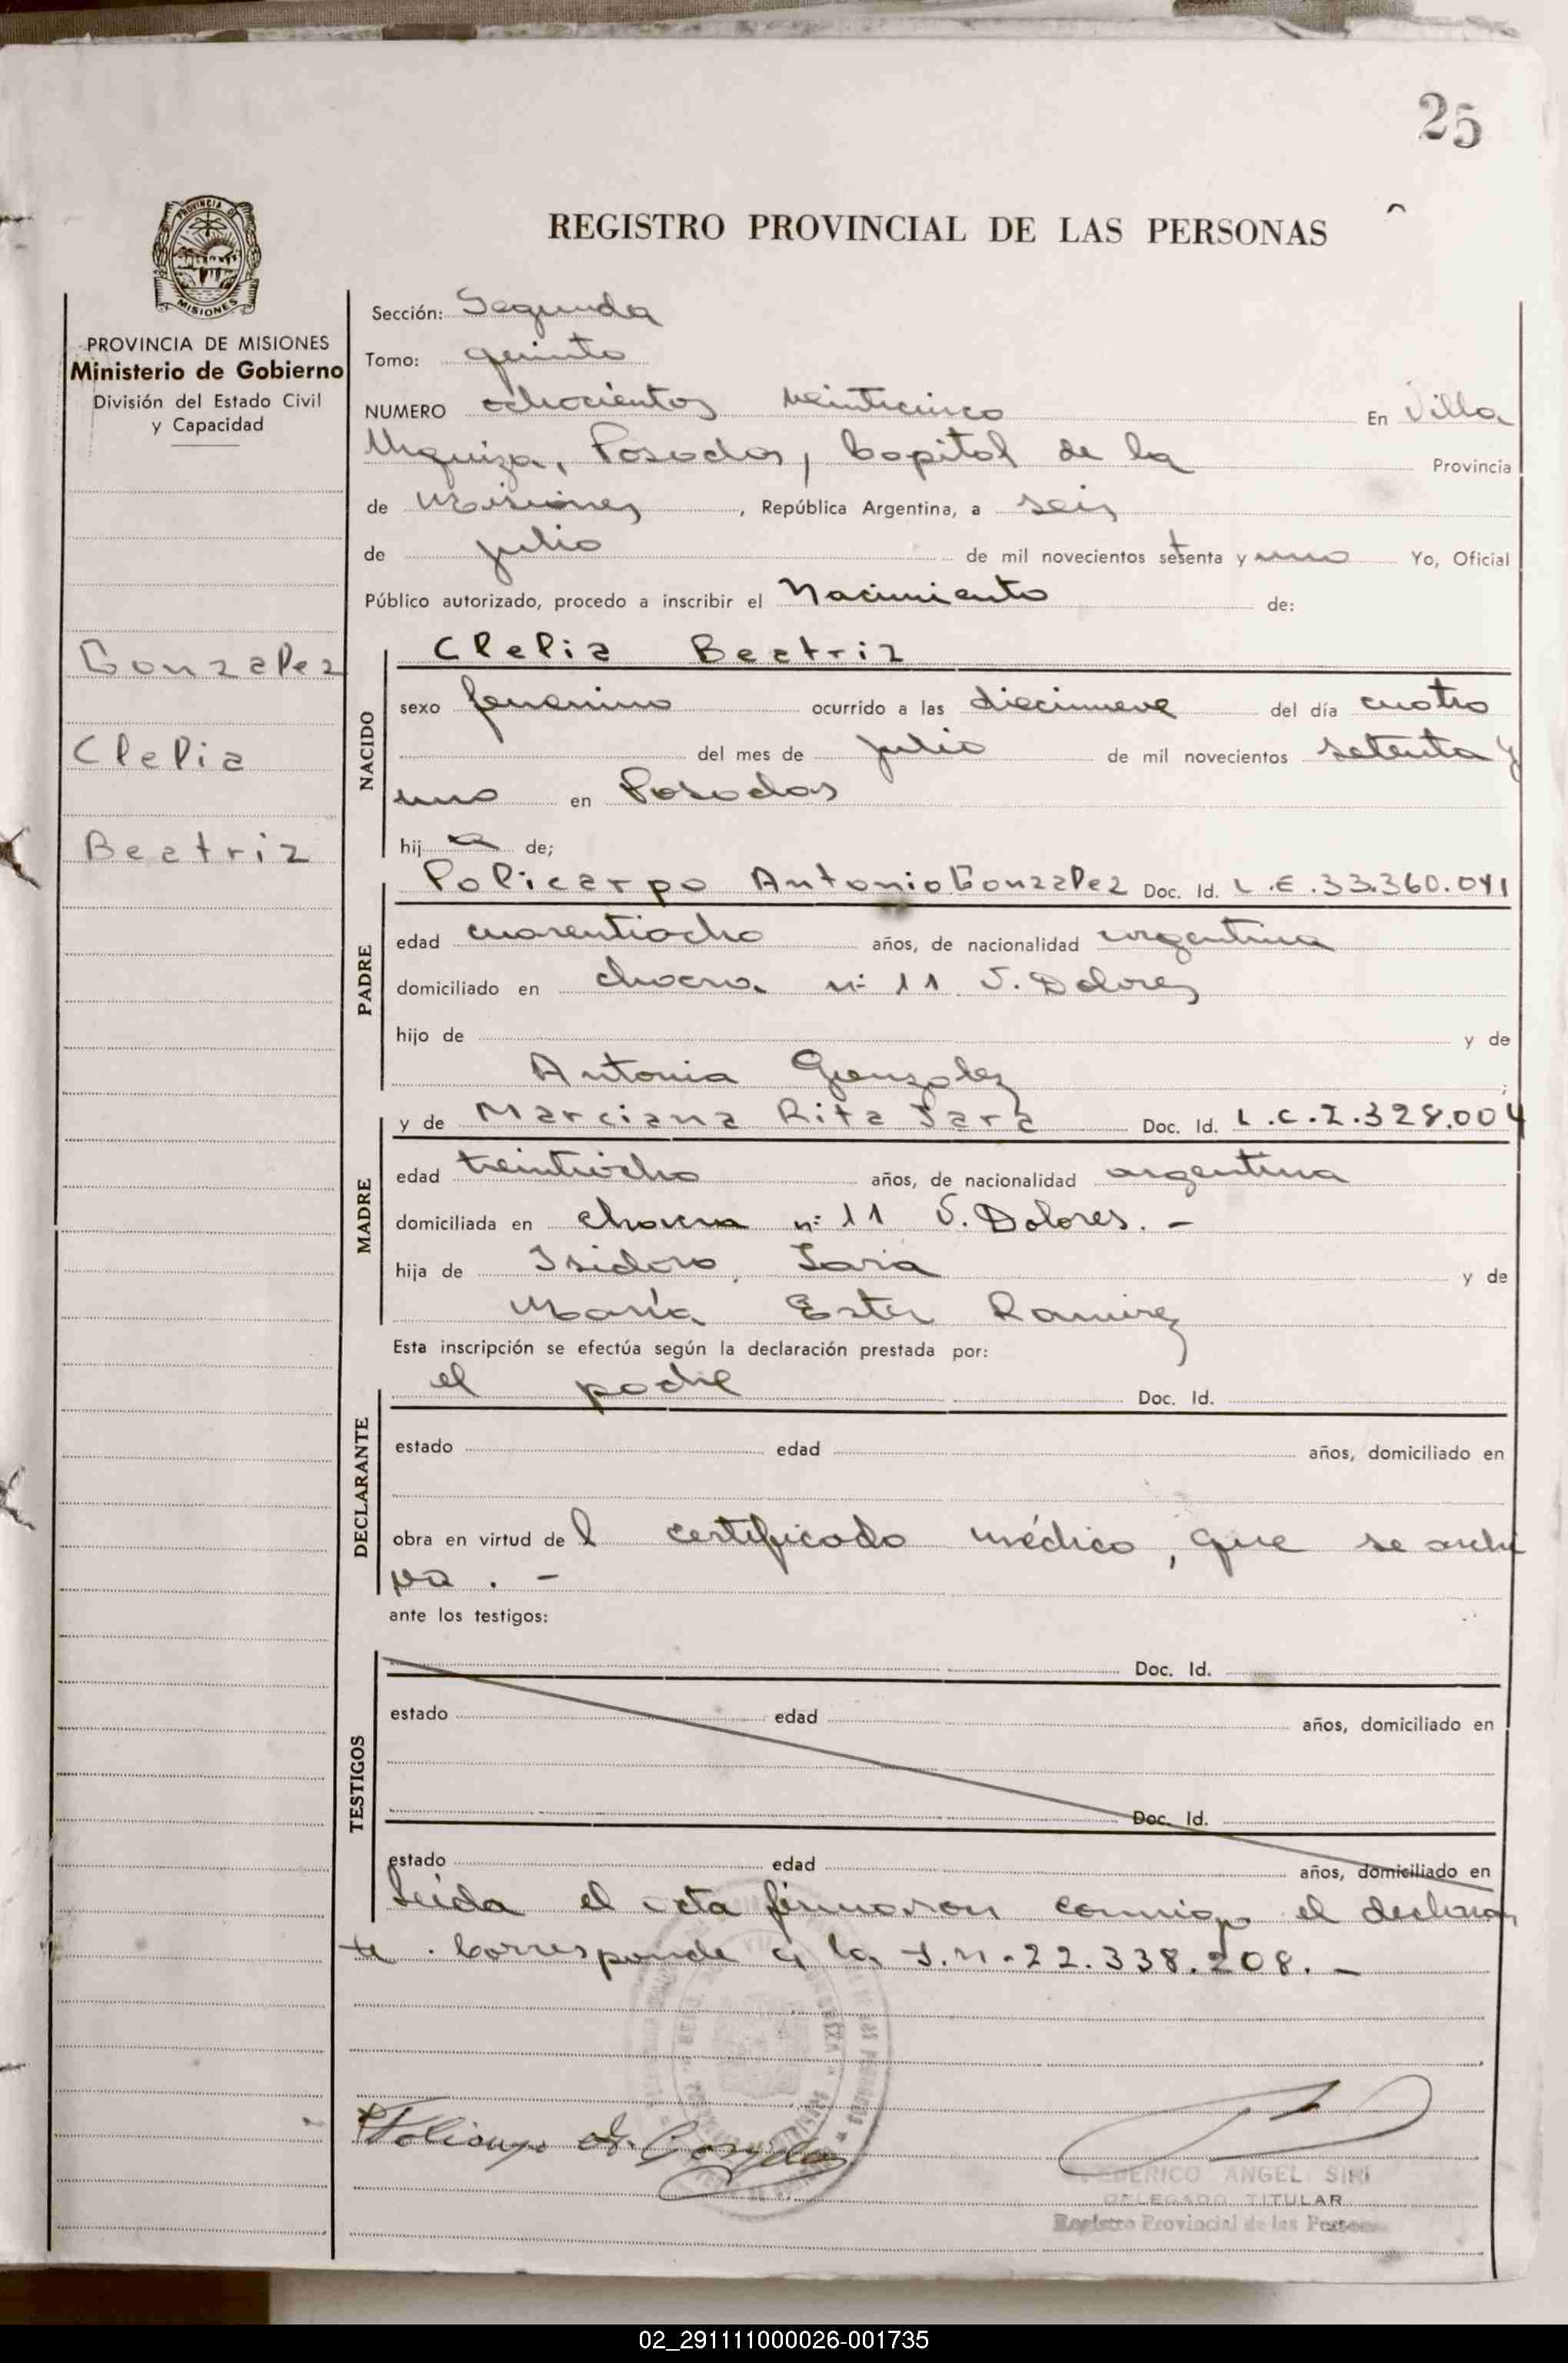 25
REGISTRO PROVINCIAL DE LAS PERSONAS
PROVINCIA DE MISIONES
Ministerio de Gobierno
División del Estado Civil
y Capacidad
Gonzalez
Clelia
Beatriz
Sección: Segunda
Tomo: quinto
NUMERO ochocientos veinticinco En Villa
Urquiza, Posadas, Capital de la Provincia
de Misiones, República Argentina, a seis
de julio de mil novecientos setenta y uno Yo, Oficial
Público autorizado, procedo a inscribir el Nacimiento de:
NACIDO
Clelia Beatriz
sexo femenino ocurrido a las diecinueve del día cuatro
del mes de julio de mil novecientos setenta y
uno en Posadas
hij a de;
PADRE
Policarpo Antonio Gonzalez Doc. Id. L.E.33.360.041
edad cuarentiocho años, de nacionalidad argentina
domiciliado en chacra nº 11 V. Dolores
hijo de y de
Antonia Gonzalez
MADRE
y de Marciana Rita Doc. Id. L.C.2.328.004
edad treintiocho años, de nacionalidad argentina
domiciliada en chacra nº 11 V. Dolores. -
hija de Isidoro y de
María Ester Ramirez
Esta inscripción se efectúa según la declaración prestada por:
DECLARANTE
el padre Doc. Id.
estado edad años, domiciliado en
obra en virtud de l certificado médico, que se archi
va. -
ante los testigos:
TESTIGOS
Doc. Id.
estado edad años, domiciliado en
Doc. Id.
estado edad años, domiciliado en
Leída el acta firmaron conmigo el declaran
te. Corresponde a la I.N.22.338.208. -
Policarpo A. Gonzalez
FEDERICO ANGEL SIRI
DELEGADO TITULAR
Registro Provincial de las Personas
02_291111000026-001735